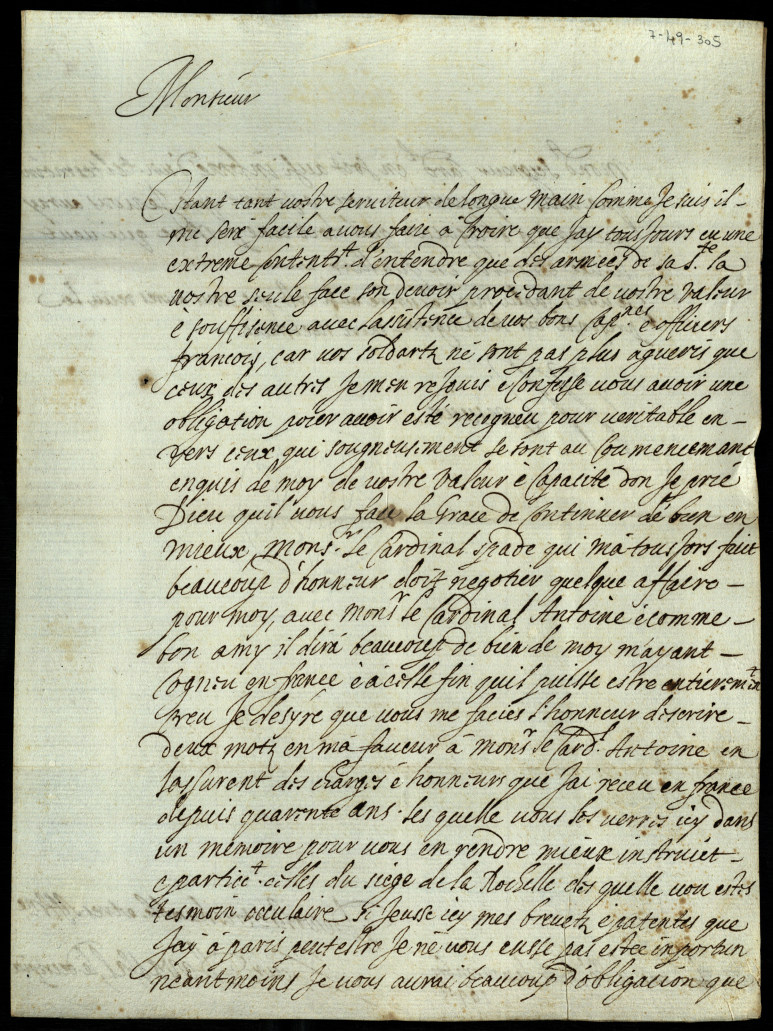 7-49-305
Monsieur
Estant tant vostre serviteur de longue main comme Je suis il-
me sera facile a vous faire a croire que Jay tousjours eu une
extreme contentt. d'entendre que des armees de sa Sté. la
vostre seule face son devoir procedant de vostre valeur
è souffisence avec lassistence de vos bons Capnes è officiers
francois, car vos soldartz ne sont pas plus agueris que
ceux des autres Je men rejouis è Confesse vous avoir une
obligation pour avoir esté recogneu pour veritable en-
vers ceux qui sougneusement se sont au coumencemant
enquis de moy de vostre valeur è Capacité don Je prie
Dieu quil vous face la Grace de Continuer de bien en
mieux, monsr. le Cardinal spade qui mà tousjors faict
beaucoup d'honneur doit negotier quelque affaere-
pour moy, avec Monsr le Cardinal Antoine è comme-
bon amy il dirà beaucoup de bien de moy m'ayant-
Cogneu en france è à celle fin quil puisse estre entieremt
creu Je desyre que vous me facies l'honneur descrire-
deux motz en mà faveur à Monsr le Card. Antoine en
lassurent des charges è honneurs que Jai receu en france
depuis quarente ans. les quelle vous les verres icy dans
un mémoire pour vous en rendre mieux instruict-
è partict. celles du siège de la Rochelle des quelle vou estes
tesmoin occulaire si Jeusse icy mes brevetz è patentes que
Jay à paris peutestre Je ne vous eusse pas estée inportun
neantmoins Je vous aurai beaucoup d'obligation que